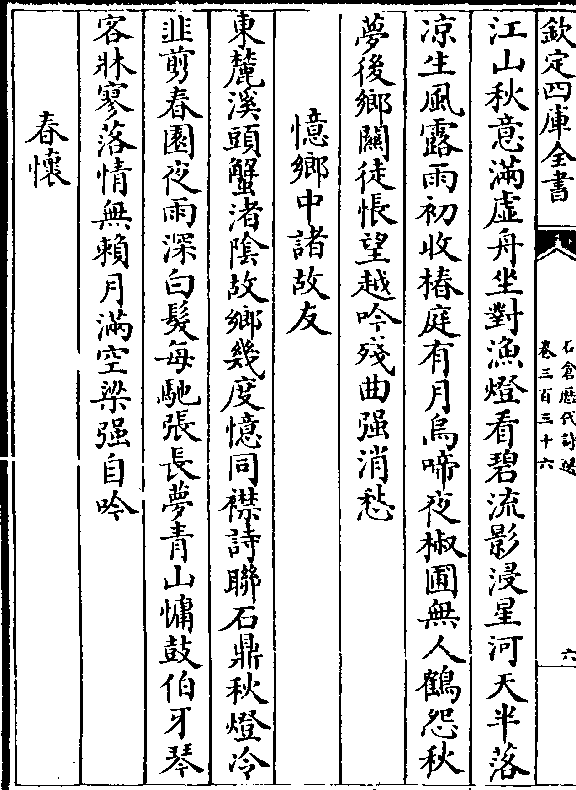 欽定四庫全書
石倉歷代詩選
卷三百三十六
六
江山秋意滿虛舟坐對漁燈看碧流影浸星河天半落
凉生風露雨初收椿庭有月烏啼夜椒圃無人鶴怨秋
夢後鄉關徒悵望越吟殘曲强消愁
憶鄉中諸故友
東麓溪頭蟹渚陰故鄉幾度憶同襟詩聯石鼎秋燈冷
韭剪春園夜雨深白髮每馳張長夢青山慵鼓伯牙琴
客牀寥落情無賴月滿空梁强自吟
春懷